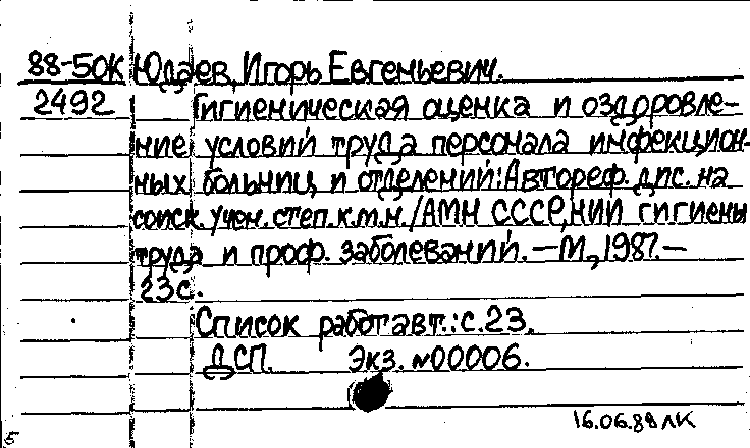 88-50К Юдаев, Игорь Евгеньевич.
2492 Гигиеническая оценка и оздоровле-
ние условий труда персонала инфекцион-
ных больниц и отделений: Автореф. дис. на
соиск. учен. степ. к.м.н. / АМН СССР, НИИ гигиены
труда и проф. заболеваний. — М., 1987. —
23с.
Список работ авт.: с. 23.
ДСП. Экз. №00006.
16.06.88 ЛК
5